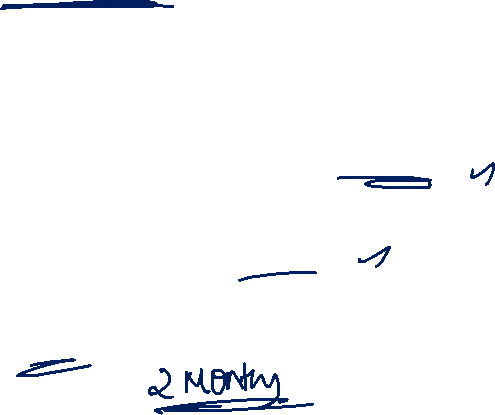 2 Month